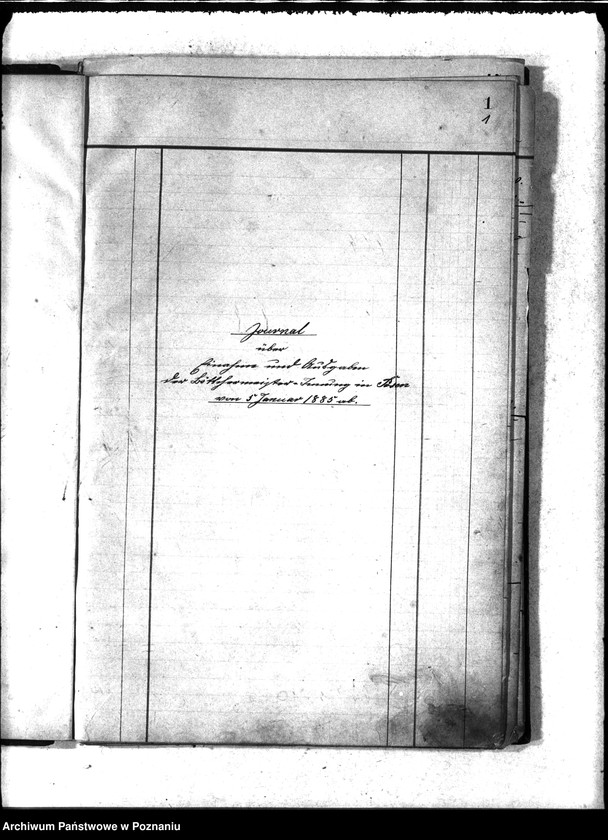 1
1
Journal
über
Einahme und Ausgaben
der Böttchermeister-Innung in Posen
von 5 Januar 1885 ab.
Archiwum Państwowe w Poznaniu